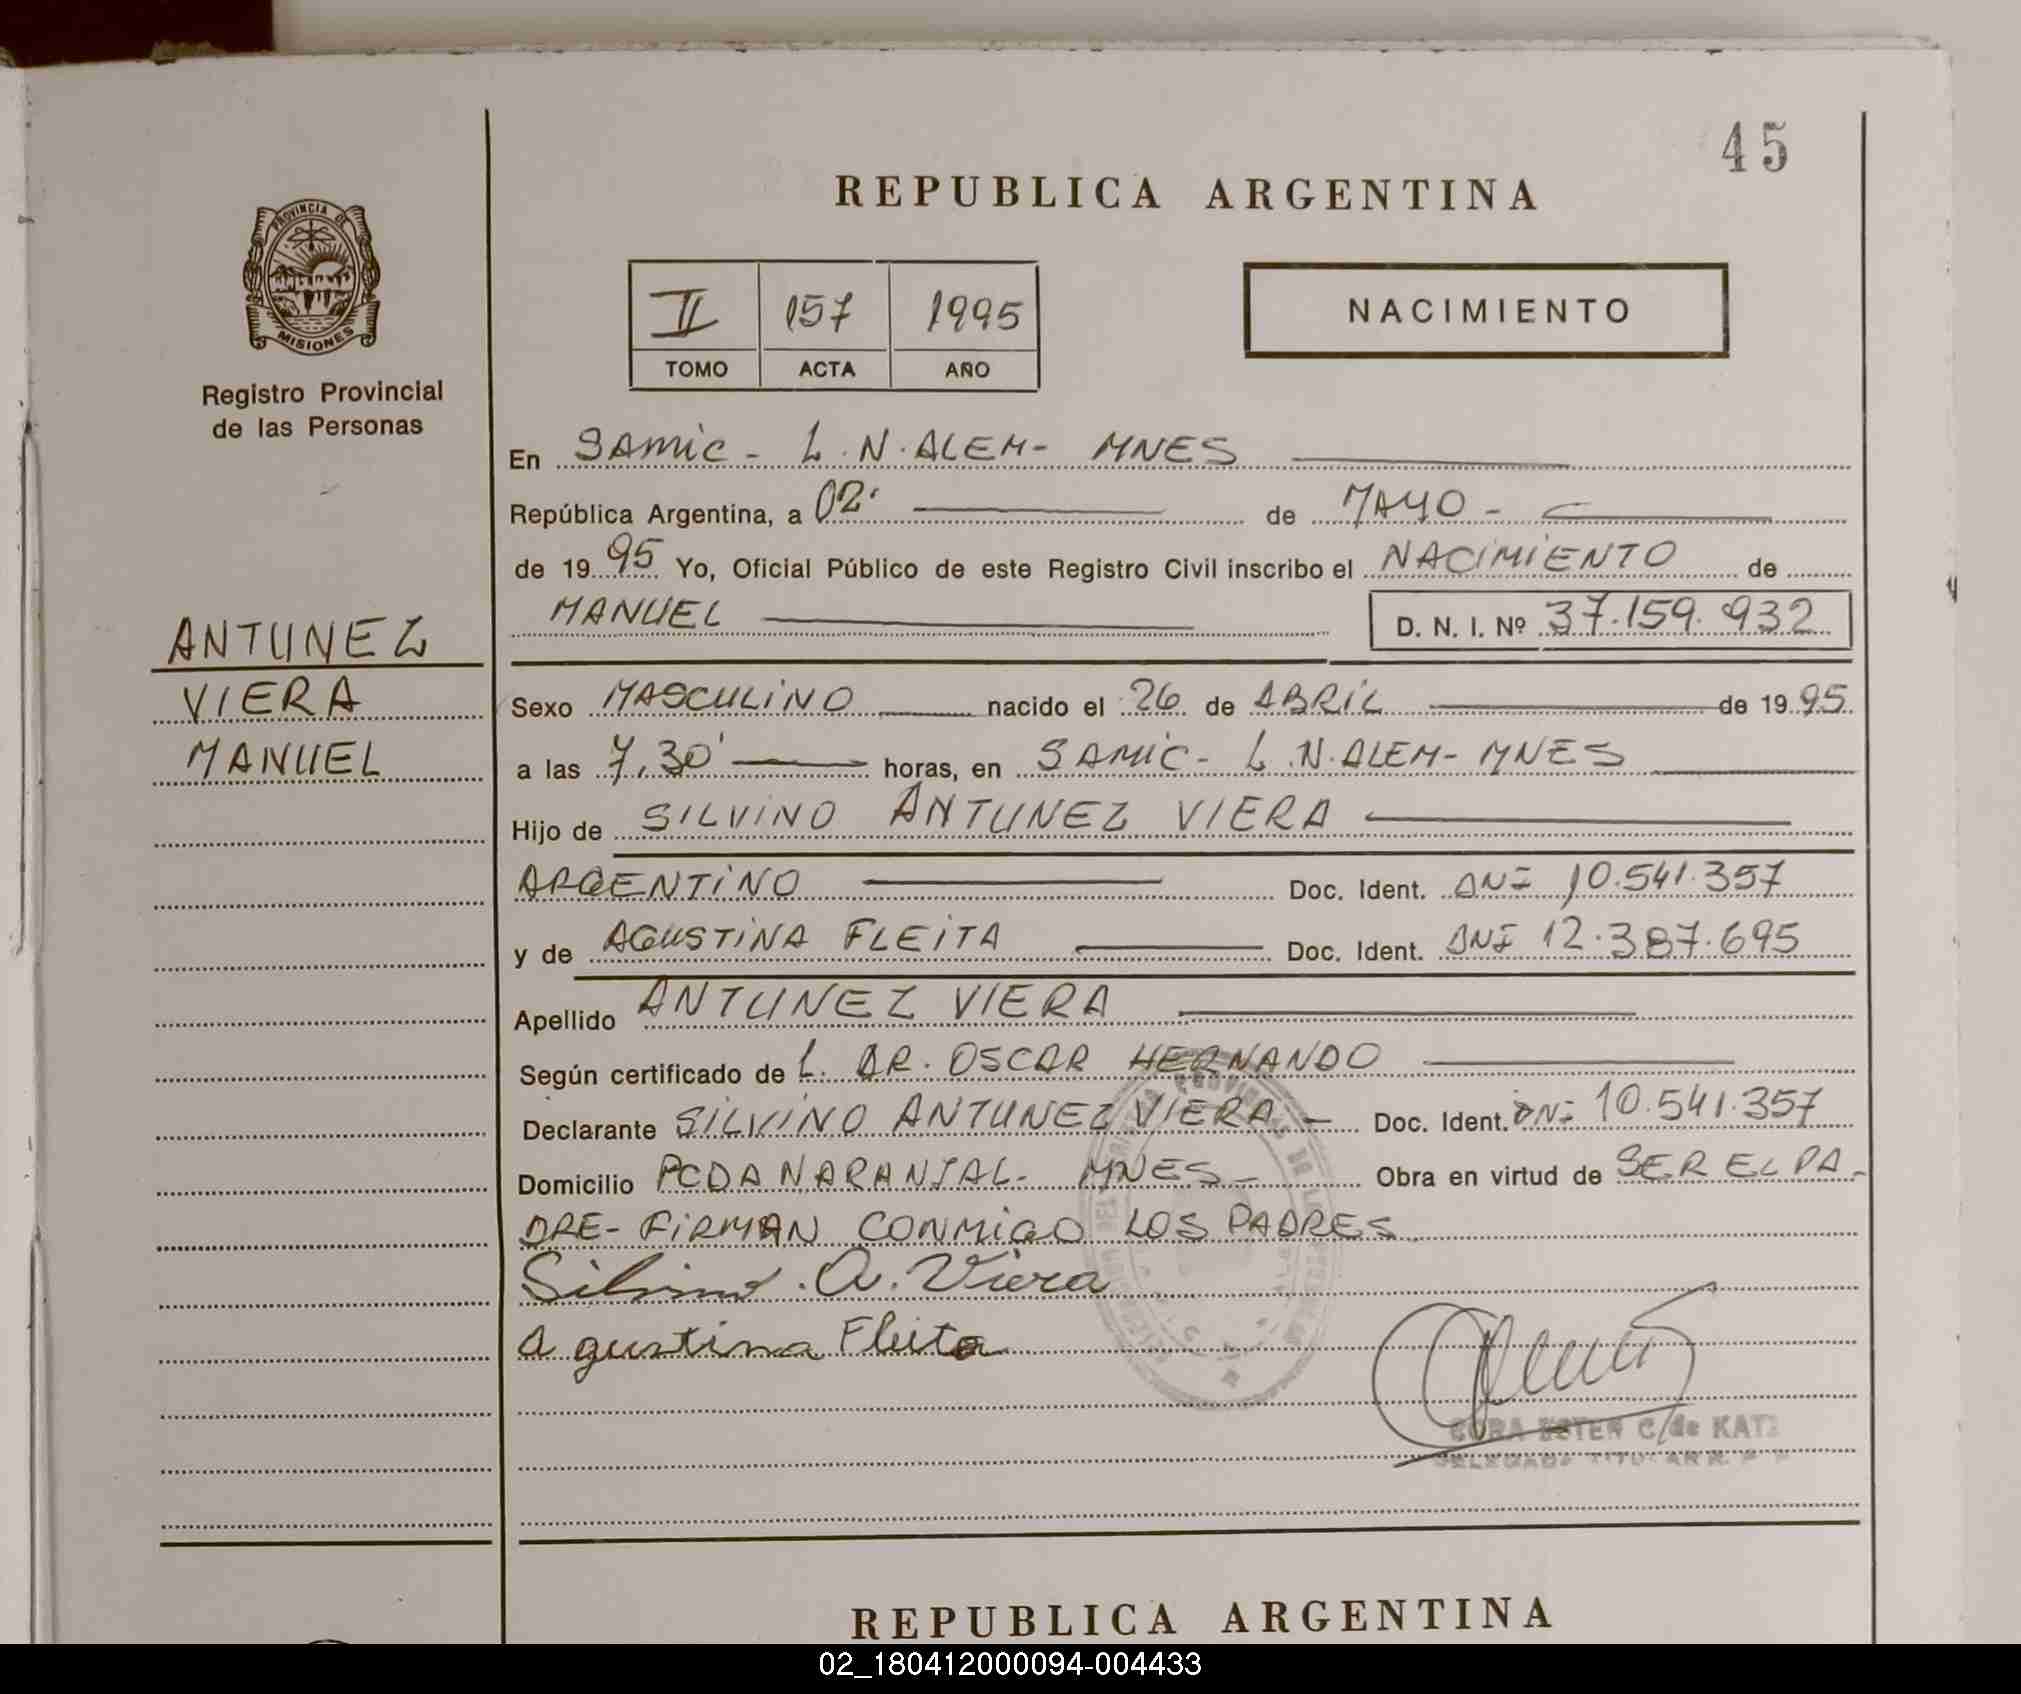 45
REPUBLICA ARGENTINA
PROVINCIA DE
MISIONES
Registro Provincial
de las Personas
II 157 1995
TOMO ACTA AÑO
NACIMIENTO
En SAMIC - L.N.ALEM - MNES
República Argentina, a 02 de MAYO -
de 1995 Yo, Oficial Público de este Registro Civil inscribo el NACIMIENTO de
MANUEL D. N. I. Nº 37.159.932
ANTUNEZ
VIERA
MANUEL
Sexo MASCULINO nacido el 26 de ABRIL de 1995
a las 7,30' horas, en SAMIC - L.N.ALEM - MNES
Hijo de SILVINO ANTUNEZ VIERA
ARGENTINO Doc. Ident. DNI 10.541.357
y de AGUSTINA FLEITA Doc. Ident. DNI 12.387.695
Apellido ANTUNEZ VIERA
Según certificado de L. DR. OSCAR HERNANDO
Declarante SILVINO ANTUNEZ VIERA - Doc. Ident. DNI 10.541.357
Domicilio PCDA NARANJAL - MNES - Obra en virtud de SER EL PA-
DRE - FIRMAN CONMIGO LOS PADRES
Silvino. A. Viera
Agustina Fleita
CORA ESTER C. de KATZ
REPUBLICA ARGENTINA
02_180412000094-004433